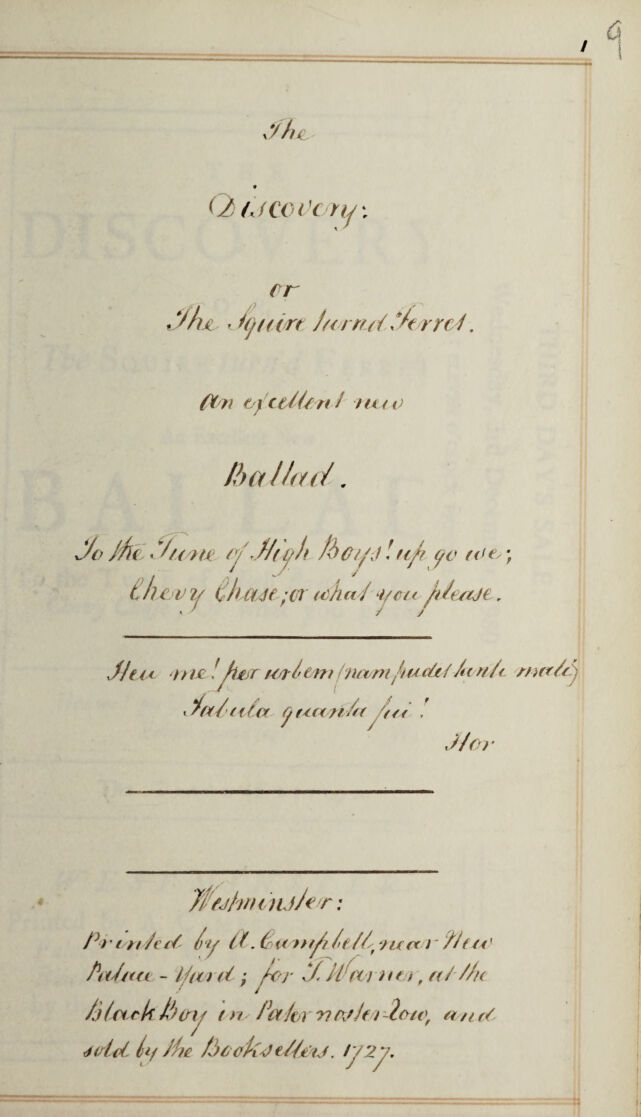 1 9
The
Discovery:
or
The Squire turnd Ferret.
An excellent new
Ballad.
To the Tune of High Boys! up go we;
Chevy Chase; or what you please.
Heu me! per urbem (nam pudet tanti mali)
Fabula quanta fui!
Hor
Westminster:
Printed by A. Campbell, near New
Palace-Yard; for T. Warner, at the
Black Boy in Pater noster-Row, and
sold by the Booksellers. 1727.